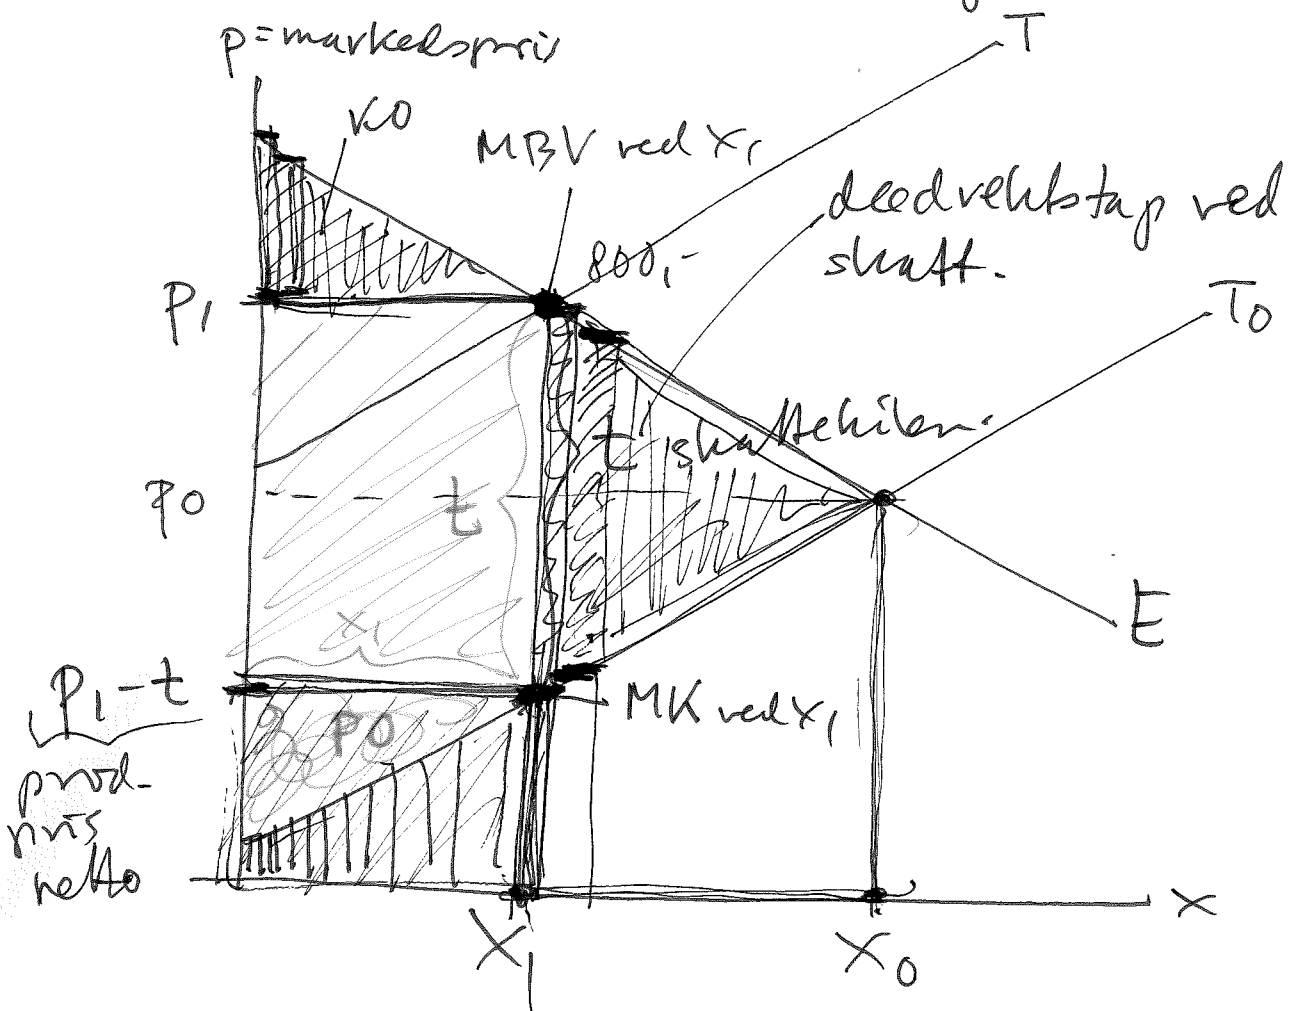 p=markedspris
T
KO
MBV ved X₁
dødvektstap ved
skatt.
800,-
P₁
T₀
t skattekilen.
P₀
t
E
X₁
P₁-t
PO
MK ved X₁
prod-
pris
netto
X
X₁
X₀